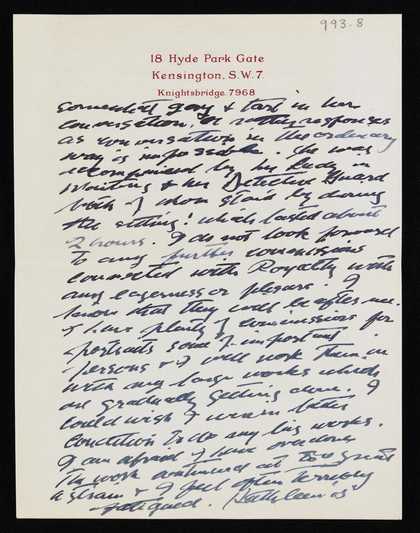 993-8
18 Hyde Park Gate
Kensington, S.W.7.
Knightsbridge 7968
somewhat gay & tart in her
conversation, or rather responses
as conversation in the ordinary
way is impossible. She was
accompanied by her Lady in
Waiting & her Detective Guard
both of whom stand by during
the sitting! which lasted about
2 hours. I do not look forward
to any further commissions
connected with Royalty with
any eagerness or pleasure. I
know that they will be after me.
I have plenty of commissions for
portraits some of important
persons & I will work them in
with my large works which
are gradually getting done. I
could wish I were in better
condition to do my big works.
I am afraid I have overdone
the work continued at too great
a strain & I feel often terribly
fatigued. Kathleen is